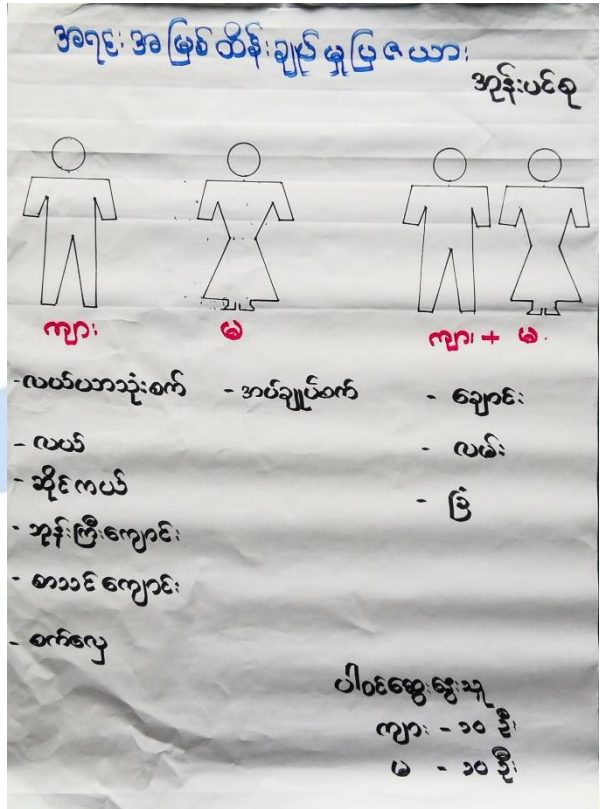 အရင်းအမြစ်ထိန်းချုပ်မှုပြဇယား
အုန်းပင်စု
ကျား
မ
ကျား + မ
- လယ်ယာသုံးစက်
- လယ်
- ဆိုင်ကယ်
- ဘုန်းကြီးကျောင်း
- စာသင်ကျောင်း
- စက်လှေ
- အပ်ချုပ်စက်
- ချောင်း
- လမ်း
- ခြံ
ပါဝင်ဆွေးနွေးသူ
ကျား - ၁၀ ဦး
မ - ၁၀ ဦး